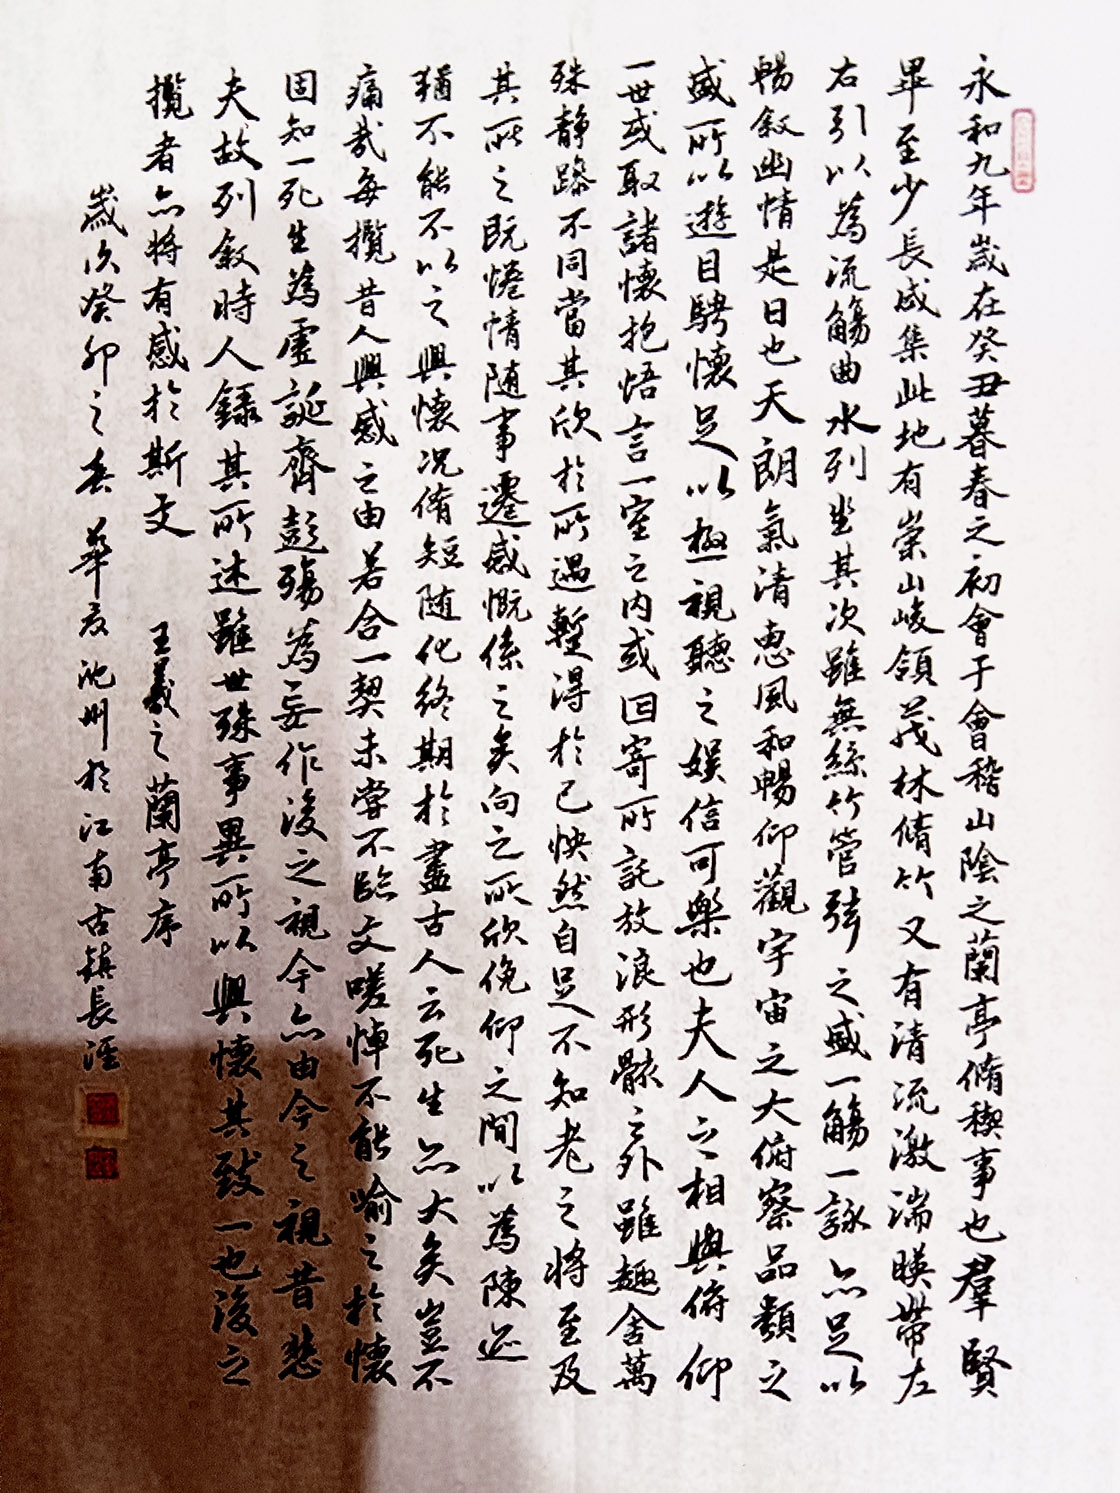 永和九年歲在癸丑暮春之初會于會稽山陰之蘭亭脩稧事也羣賢
畢至少長咸集此地有崇山峻領茂林脩竹又有清流激湍暎帶左
右引以為流觴曲水列坐其次雖無絲竹管弦之盛一觴一詠亦足以
暢敘幽情是日也天朗氣清惠風和暢仰觀宇宙之大俯察品類之
盛所以遊目騁懷足以極視聽之娱信可樂也夫人之相與俯仰
一世或取諸懷抱悟言一室之內或因寄所託放浪形骸之外雖趣舍萬
殊静躁不同當其欣於所遇蹔得於己怏然自足不知老之將至及
其所之既惓情随事遷感慨係之矣向之所欣俛仰之間以為陳迹
猶不能不以之興懷况脩短随化終期於盡古人云死生亦大矣豈不
痛哉每攬昔人興感之由若合一契未嘗不臨文嗟悼不能喻之於懷
固知一死生為虛誕齊彭殤為妄作後之視今亦由今之視昔悲
夫故列敘時人錄其所述雖世殊事異所以興懷其致一也後之
攬者亦將有感於斯文 王羲之蘭亭序
歲次癸卯之春 華友池州於江南古鎮長涇